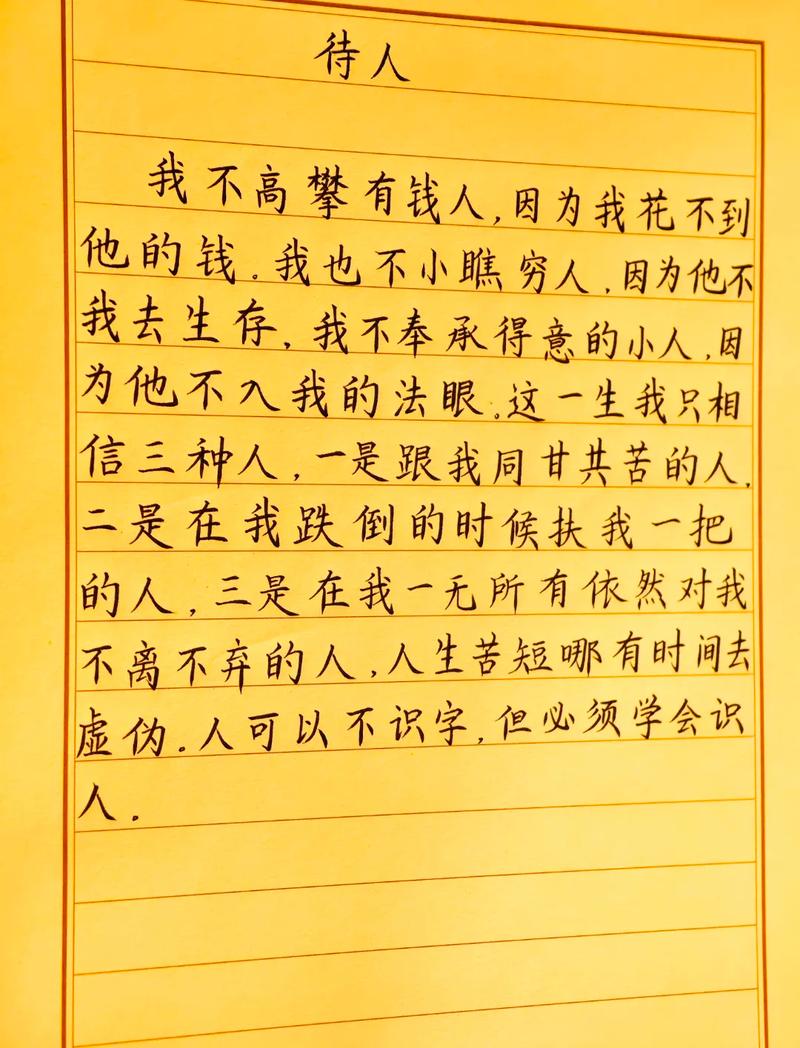 待人
我不高攀有钱人,因为我花不到
他的钱。我也不小瞧穷人,因为他不
我去生存,我不奉承得意的小人,因
为他不入我的法眼。这一生我只相
信三种人,一是跟我同甘共苦的人,
二是在我跌倒的时候扶我一把
的人,三是在我一无所有依然对我
不离不弃的人,人生苦短哪有时间去
虚伪。人可以不识字,但必须学会识
人。